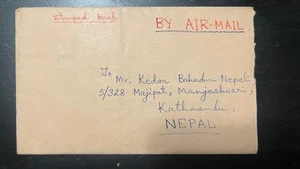 Stamped book
BY AIR-MAIL
To
Mr. Kedar Bahadur Nepali
5/328 Majipat, Manjeshwari,
Kathmandu,
NEPAL